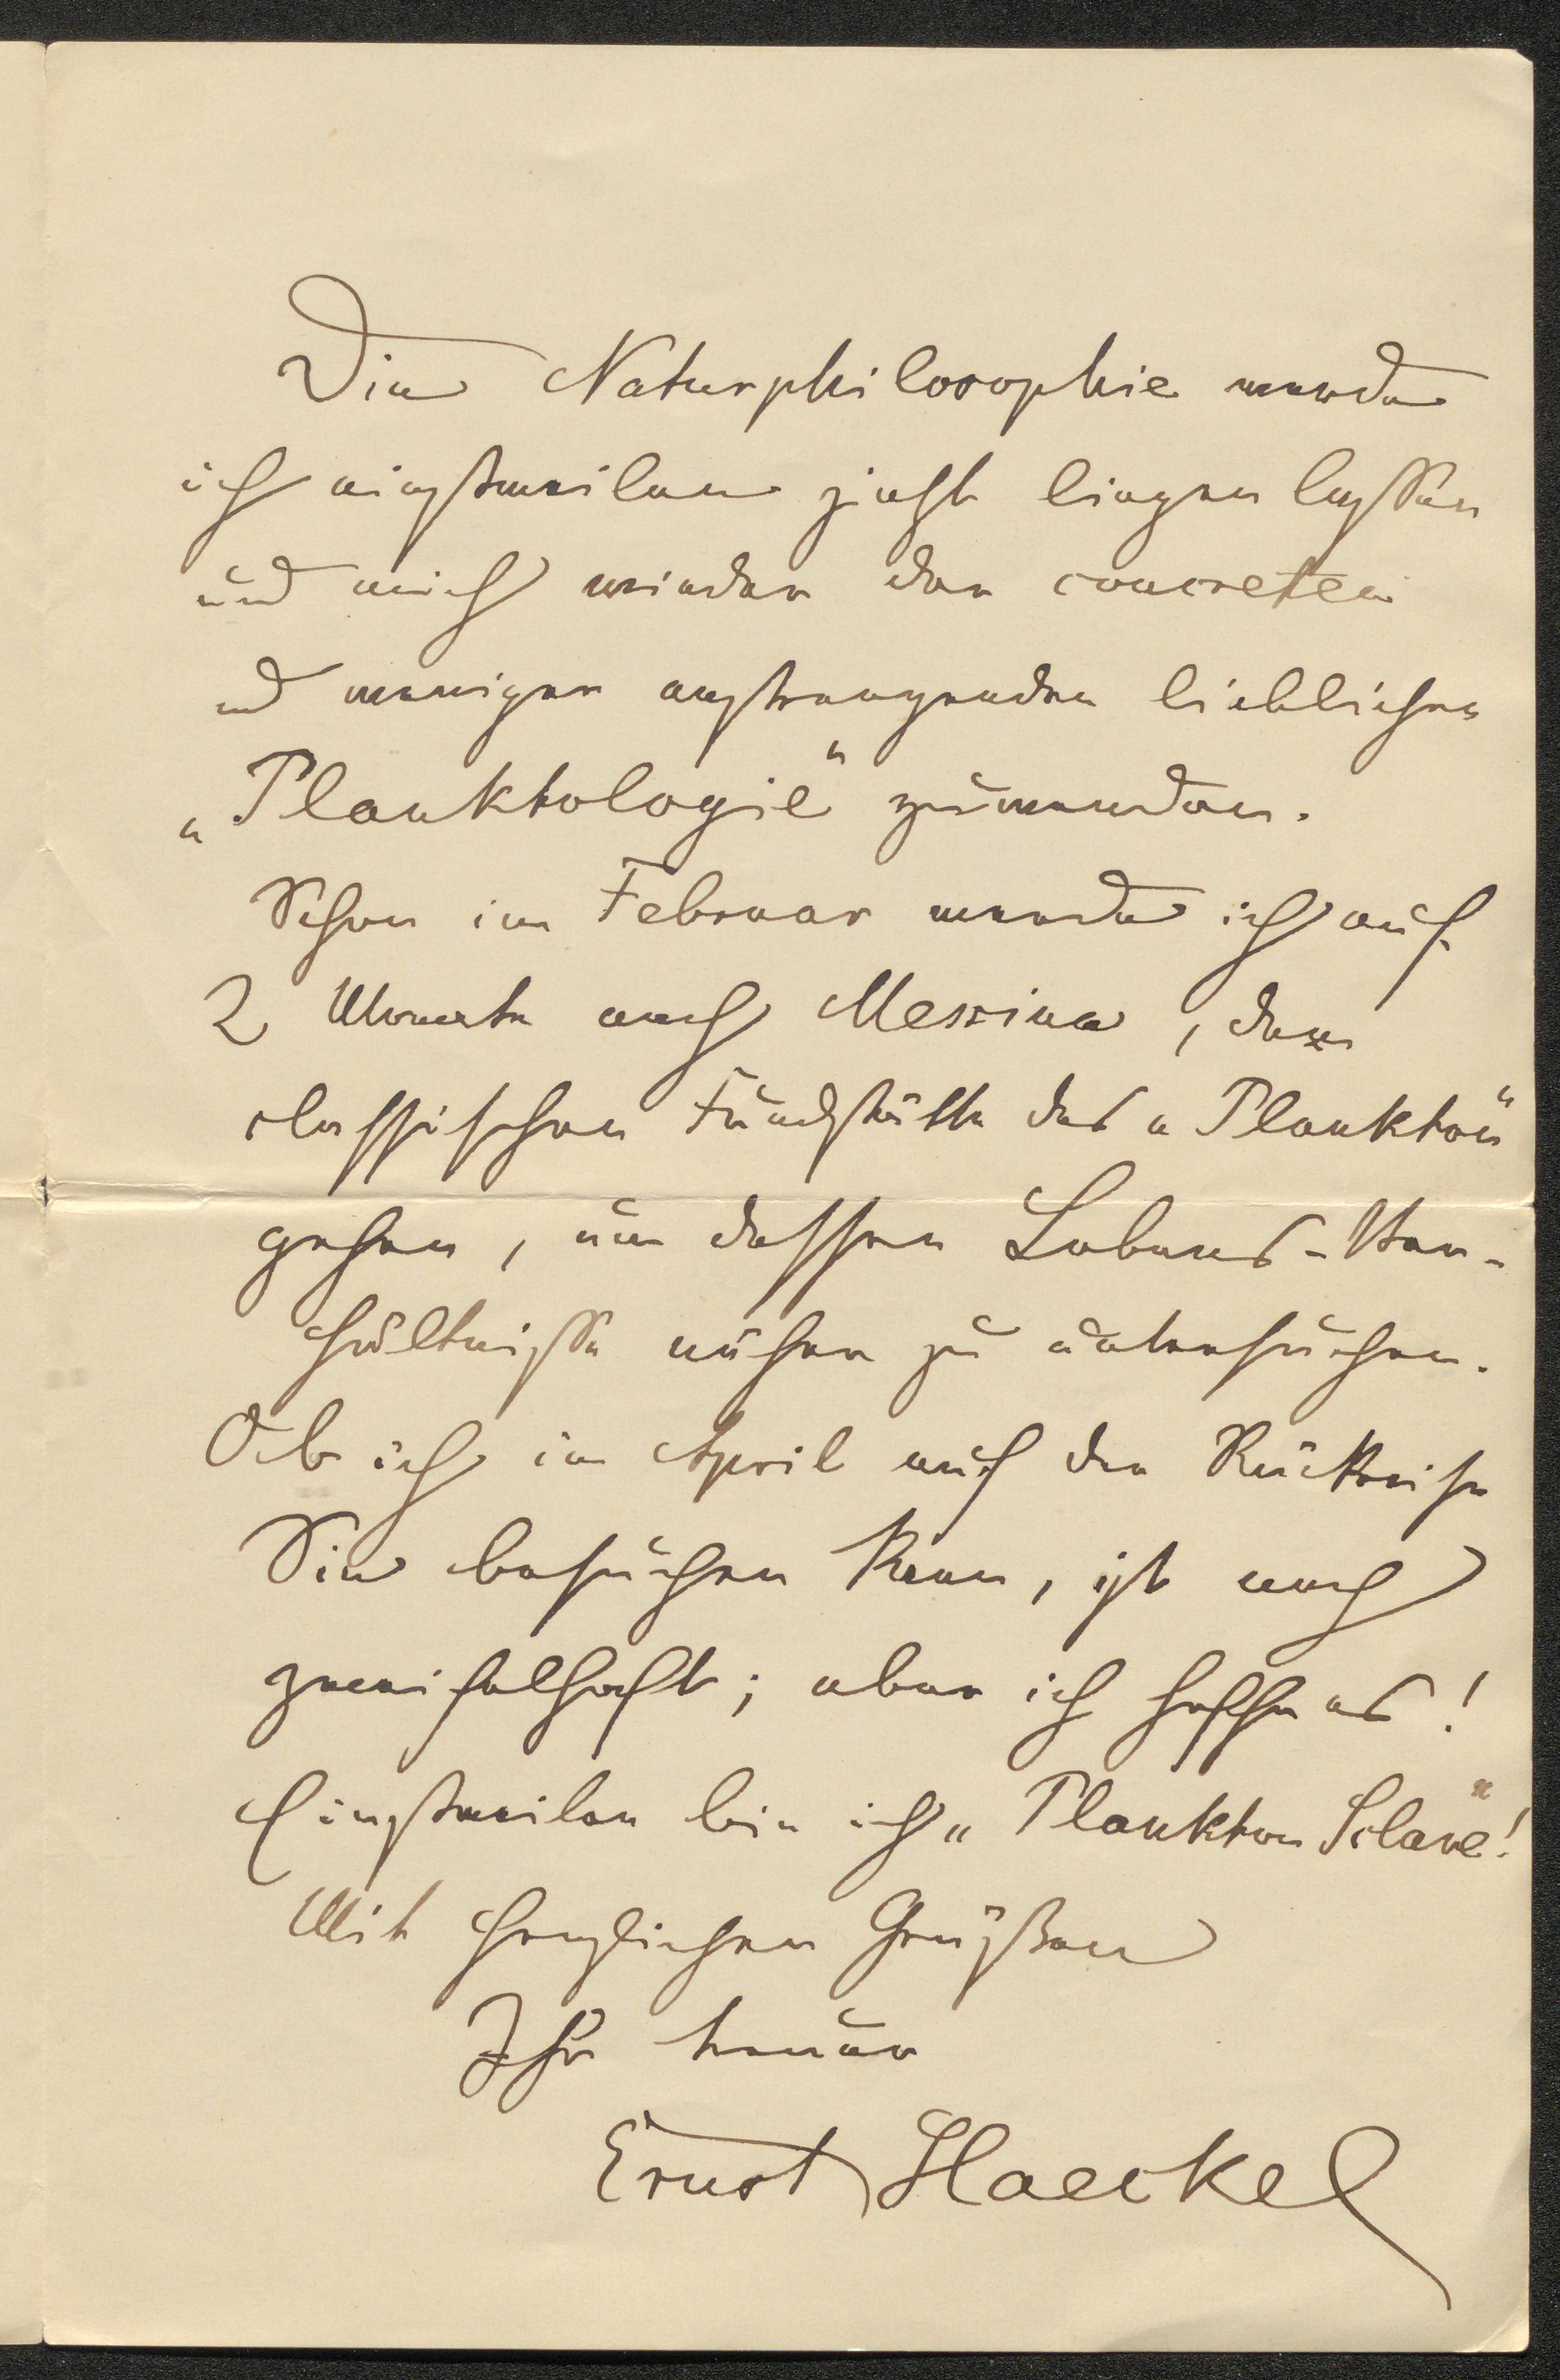 Die Naturphilosophie werde
ich einstweilen jetzt liegen lassen
und mich wieder der concreten
u̅d weniger anstrengenden lieblichen
„Planktologie“ zuwenden.
Schon im Februar werde ich auf
2 Monate nach Messina, der
classischen Fundstätte des „Plankton“
gehen, um dessen Lebens-Ver-
hältnisse näher zu untersuchen.
Ob ich im April auf der Rückreise
Sie besuchen kann, ist noch
zweifelhaft; aber ich hoffe es!
Einstweilen bin ich „Plankton Sclave“!
Mit herzlichen Grüßen
Ihr treuer
Ernst Haeckel